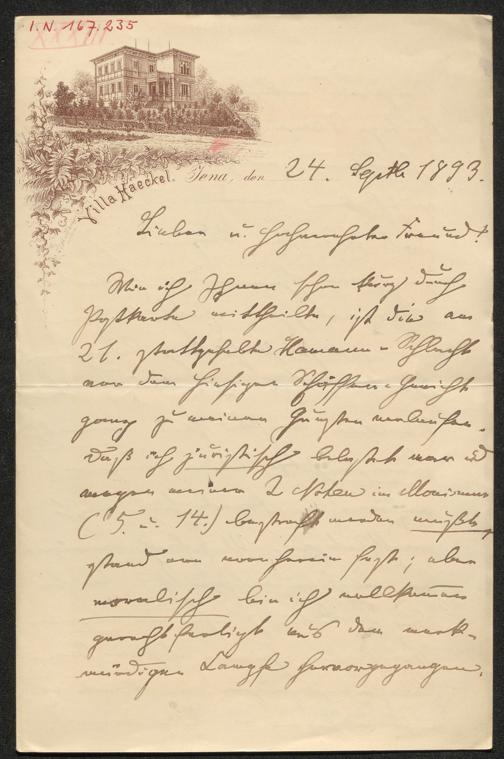 I.N. 167.235
XXXIII
Villa Haeckel.
Jena, den 24. Septb 1893.
Lieber u. hochverehrter Freund!
Wie ich Ihnen schon kurz durch
Postkarte mittheilte, ist die am
21. stattgehabte Hamann-Schlacht
vor dem hiesigen Schöffen-Gericht
ganz zu meinen Gunsten verlaufen.
Daß ich juristisch belastet war und
wegen meiner 2 Noten im Monismus
(5. u. 14.) bestraft werden mußte,
stand von vornherein fest; aber
moralisch bin ich vollkommen
gerechtfertigt aus dem merk-
würdigen Kampfe hervorgegangen.